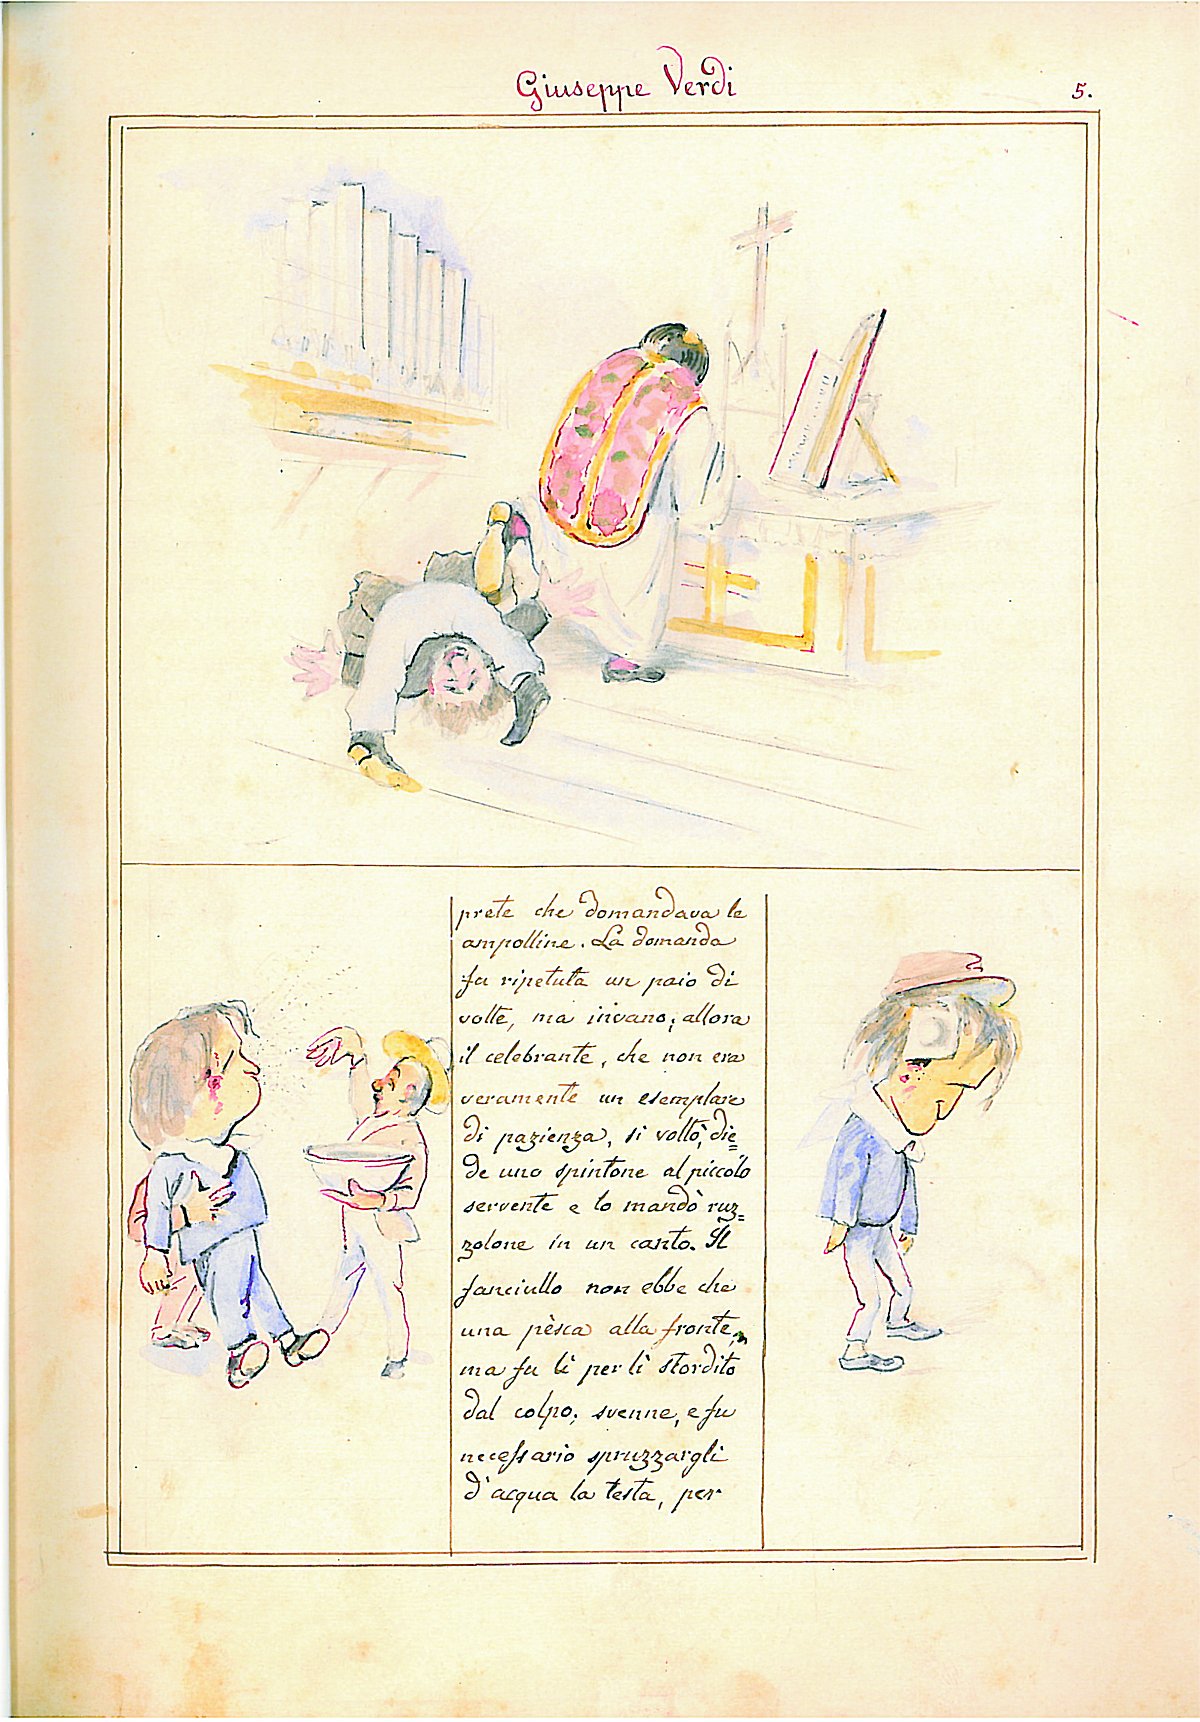 Giuseppe Verdi
5.
prete che domandava le
ampolline. La domanda
fu ripetuta un paio di
volte, ma invano; allora
il celebrante, che non era
veramente un esemplare
di pazienza, si voltò, die=
de uno spintone al piccolo
servente e lo mandò ruz=
zolone in un canto. Il
fanciullo non ebbe che
una pèsca alla fronte,
ma fu lì per lì stordito
dal colpo; svenne, e fu
necessario spruzzargli
d'acqua la testa, per